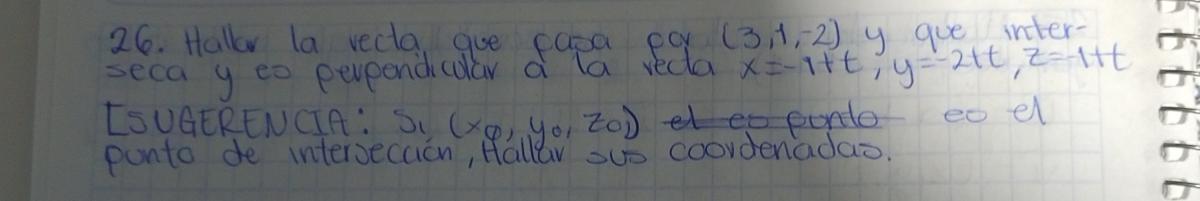 26. Hallar la recta que pasa por (3,1,-2) y que inter-
seca y es perpendicular a la recta x=-1+t, y=-2+t, z=-1+t
[SUGERENCIA: Si (x0, y0, z0) el es punto es el
punto de intersección, Hallar sus coordenadas.